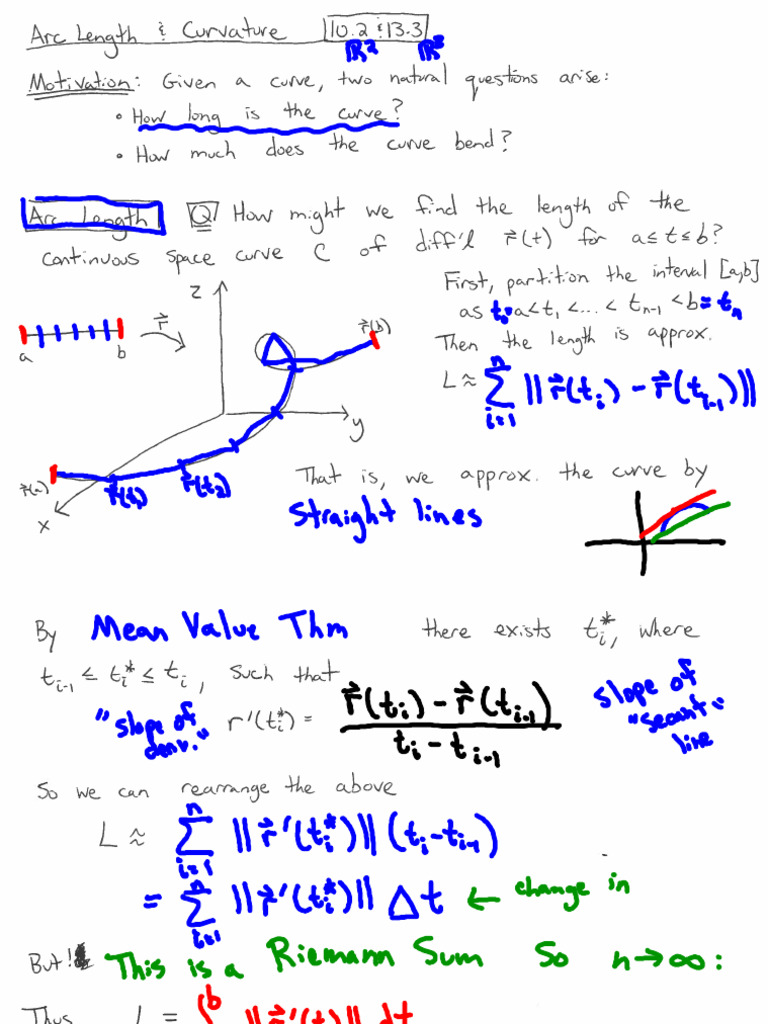 Arc Length & Curvature 10.2 & 13.3
ℝ² ℝ³
Motivation: Given a curve, two natural questions arise:
• How long is the curve?
• How much does the curve bend?
Arc Length Q How might we find the length of the
continuous space curve C of diff'l r⃗(t) for a≤t≤b?
First, partition the interval [a,b]
as t₀=a<t₁<...<tₙ₋₁<b=tₙ
Then the length is approx.
L ≈ Σᵢ₌₁ⁿ ||r⃗(tᵢ) - r⃗(tᵢ₋₁)||
a b r⃗
z
r⃗(b)
y
r⃗(a) r⃗(t₁) r⃗(t₂)
x
That is, we approx. the curve by
straight lines
By Mean Value Thm there exists tᵢ*, where
tᵢ₋₁ ≤ tᵢ* ≤ tᵢ, such that
"slope of deriv." r'(tᵢ*) = (r⃗(tᵢ) - r⃗(tᵢ₋₁)) / (tᵢ - tᵢ₋₁)
slope of
"secant"
line
So we can rearrange the above
L ≈ Σᵢ₌₁ⁿ ||r⃗'(tᵢ*)|| (tᵢ-tᵢ₋₁)
= Σᵢ₌₁ⁿ ||r⃗'(tᵢ*)|| Δt ← change in
But! This is a Riemann Sum So n→∞:
Thus L = ∫ᵇ ||r⃗'(t)|| dt